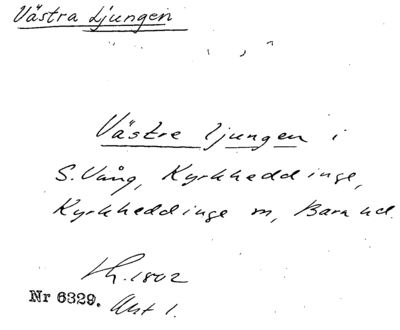 Västra Ljungen
Västre ljungen i
S. Vång, Kyrkheddinge,
Kyrkheddinge m, Bara hd.
Lh. 1802
Nr 6329. Akt 1.